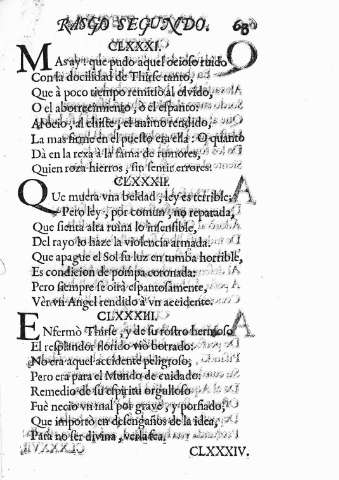 RASGO SEGUNDO. 68
CLXXXI.
MAs ay! que pudo aquel ocioso ruido
Con la docilidad de Thirse tanto,
Que à poco tiempo remitiò al olvido,
O el aborrecimiento, ò el espanto:
Al ocio, al chiste, el animo rendido,
La mas firme en el puesto era ella: O quanto
Dà en la rexa à la fama de rumores,
Quien roza hierros, sin sentir errores!
CLXXXII.
QUe muera vna beldad, ley es terrible,
Pero ley, por comun, no reparada,
Que sienta alta ruina lo insensible,
Del rayo lo haze la violencia armada.
Que apague el Sol su luz en tumba horrible,
Es condicion de pompa coronada:
Pero siempre se oirà espantosamente,
Vèr vn Angel rendido à vn accidente.
CLXXXIII.
ENfermò Thirse, y de su rostro hermoso
El resplandor florido viò borrado:
No era aquel accidente peligroso,
Pero era para el Mundo de cuidado:
Remedio de su espiritu orgulloso
Fuè necio vn mal por grave, y porfiado;
Que importò en desengaños de la idea,
Para no ser divina, verla fea.
CLXXXIV.